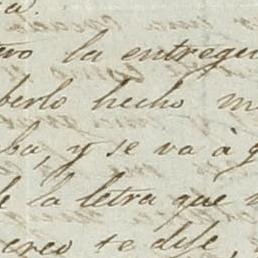 la entregu
berlo hecho m
ba, y se va à q
la letra que
creo te dije,